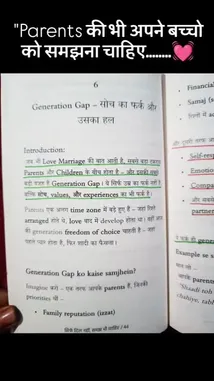 "Parents की भी अपने बच्चो
को समझना चाहिए.......💓
6
Generation Gap – सोच का फर्क और
उसका हल
Introduction:
जब भी Love Marriage की बात आती है, सबसे बड़ा टकराव
Parents और Children के बीच होता है – और इसकी सबसे
बड़ी वजह है Generation Gap। ये सिर्फ उम्र का फर्क नहीं है
बल्कि सोच, values, और experiences का भी फर्क है।
Parents एक अलग time zone में बड़े हुए हैं – वहां रिश्ते
arranged होते थे, love बाद में develop होता था। वहीं आज
की generation freedom of choice चाहती है – यहां
पहले प्यार होता है, फिर शादी का फैसला।
Generation Gap ko kaise samjhein?
Imagine करो – एक तरफ आपके parents हैं, जिनकी
priorities थीं –
• Family reputation (izzat)
सिर्फ दिल नहीं, समझ भी चाहिए / 44
• Financial
• Samaj
• रिश्तों में
और दूसरी तरफ
• Self-resp
• Emotion
• Compa
• और सबसे
partner
ये फर्क ही gener
Example se s
मान लो –
आपके parents
"Shaadi toh
chahiye, tabh